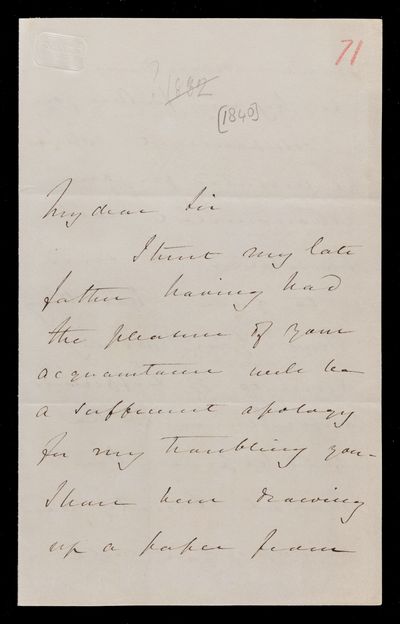 71
? 1882
[1840]
My dear Sir
I trust my late
father having had
the pleasure of your
acquaintance will be
a sufficient apology
for my troubling you -
I have been drawing
up a paper from